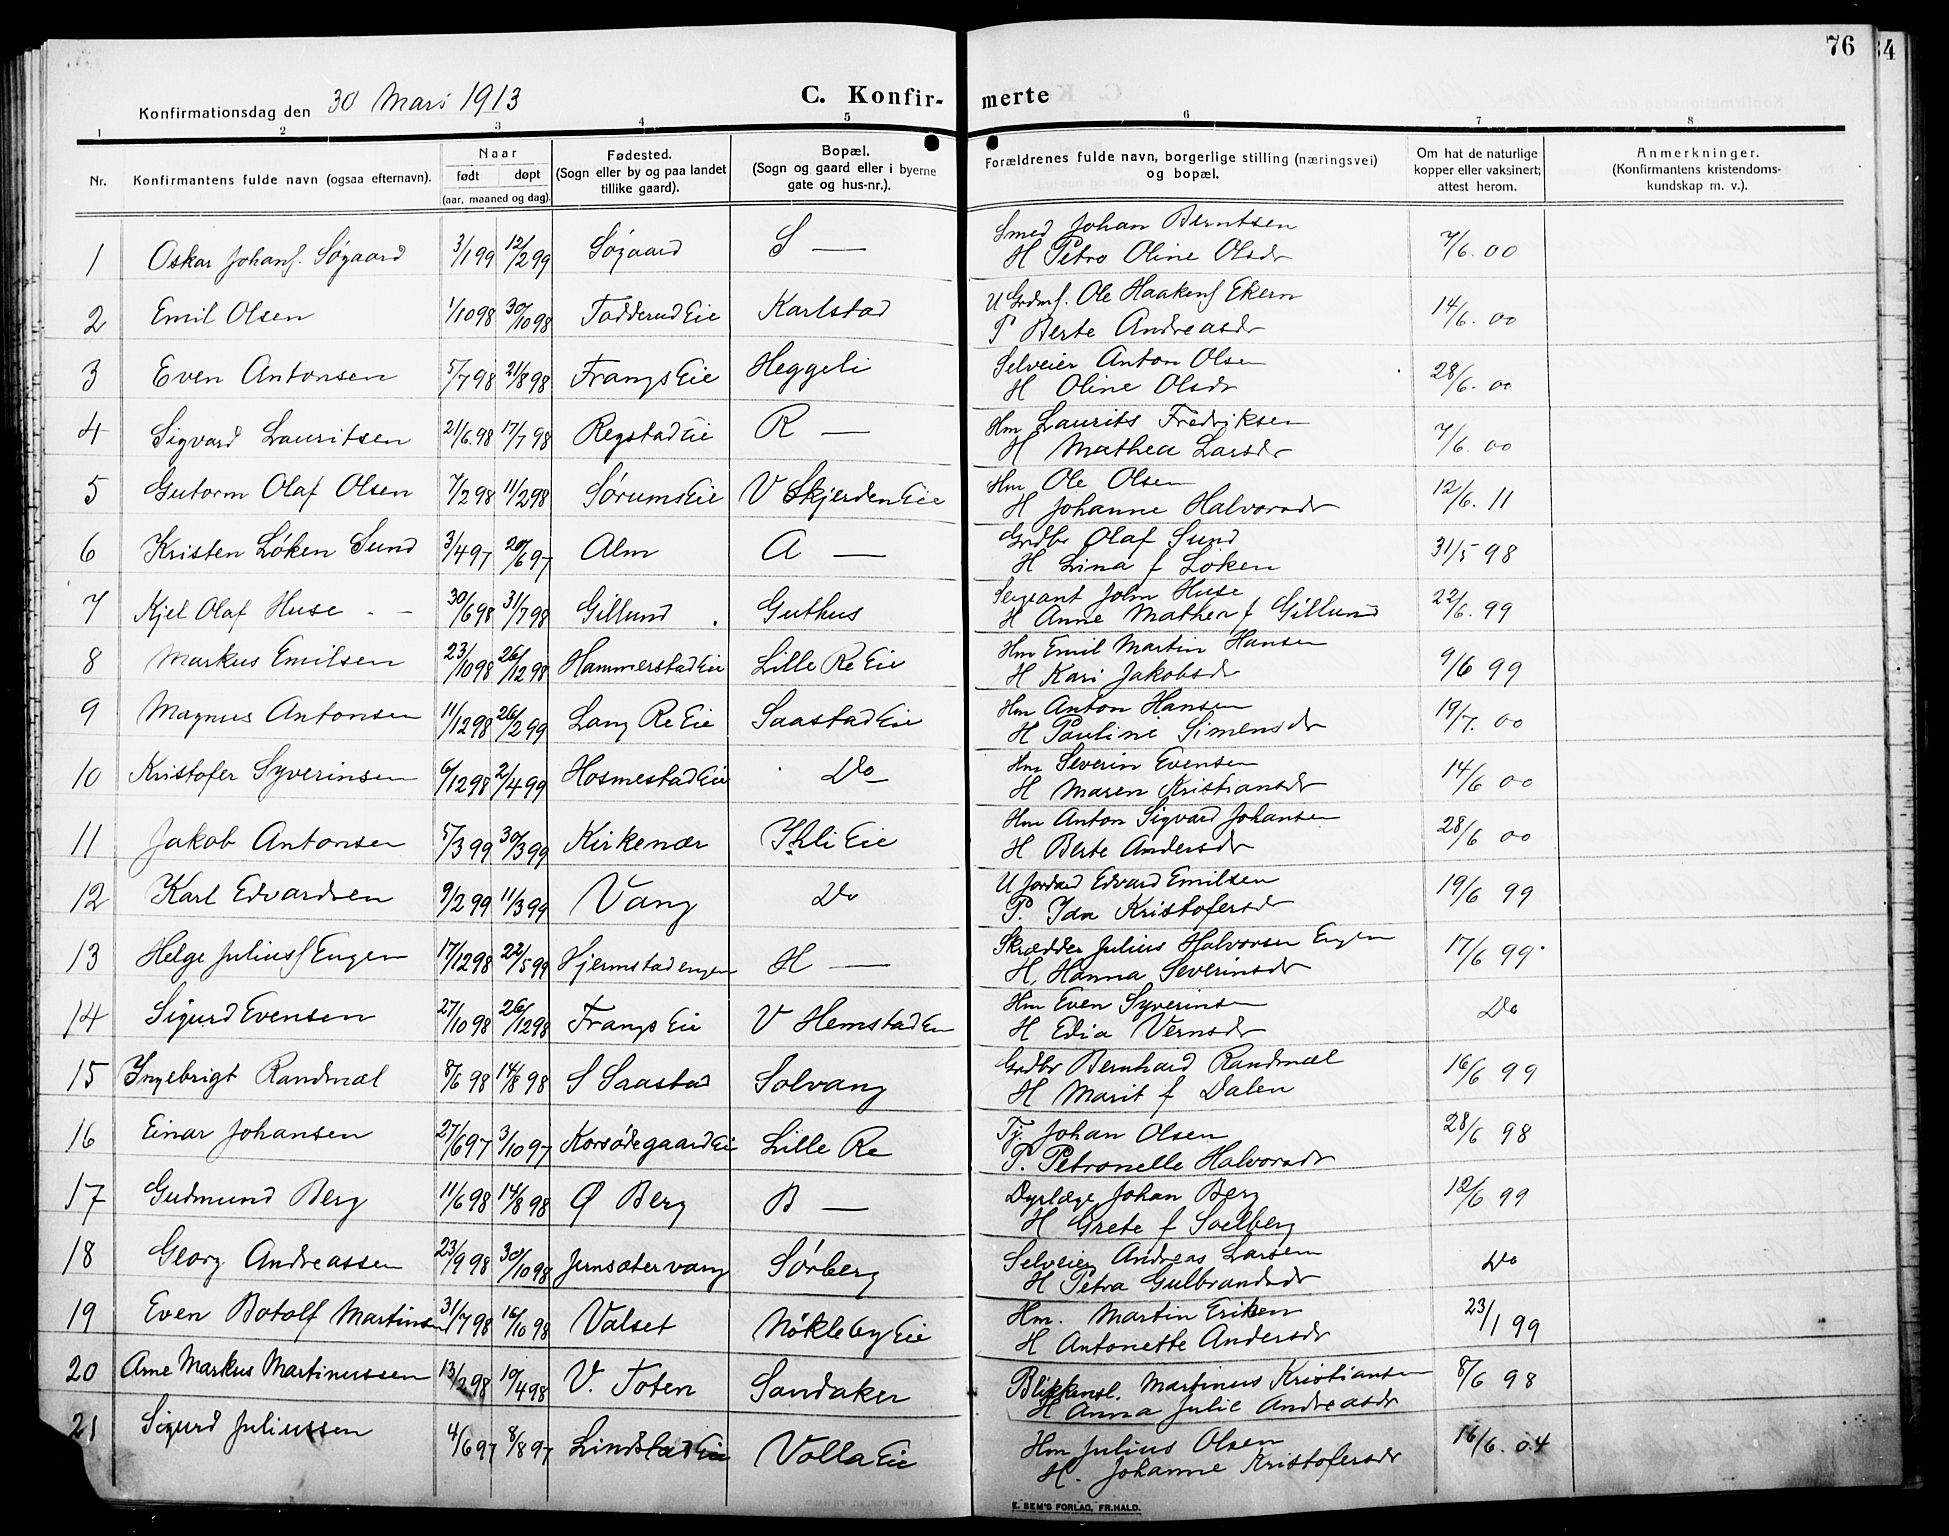 76
34
Konfirmationsdag den 30 Mars 1913
C. Konfir- merte
1 2 3 4 5 6 7 8
Nr.
Konfirmantens fulde navn (ogsaa efternavn).
Naar født døpt (aar, maaned og dag).
Fødested. (Sogn eller by og paa landet tillike gaard).
Bopæl. (Sogn og gaard eller i byerne gate og hus-nr.).
Forældrenes fulde navn, borgerlige stilling (næringsvei) og bopæl.
Om hat de naturlige kopper eller vaksinert; attest herom.
Anmerkninger. (Konfirmantens kristendomskundskap m. v.).
1 Oskar Johans. Søgaard 3/1 99 12/2 99 Søgaard S — Smed Johan Berntsen 7/6. 00
H Petro Oline Olsdr
2 Emil Olsen 1/10 98 30/10 98 Fodderud Eie Karlstad U Grdm s. Ole Haakens Ekern 14/6. 00
P Berte Andreasdr
3 Even Antonsen 5/7 98 21/8 98 Frangs Eie Heggeli Selveier Anton Olsen 28/6. 00
H Oline Olsdr
4 Sigvard Lauritsen 21/6. 98 17/7 98 Regstad Eie R — Hm Laurits Fredriksen 7/6. 00
H Mathea Larsdr
5 Gutorm Olaf Olsen 7/2 98 11/2 98 Sørums Eie V Skjerden Eie Hm Ole Olsen 12/6. 11
H Johanne Halvorsdr
6 Kristen Løken Sund 3/4 97 20/6 97 Alm A — Grdbr Olaf Sund 31/5 98
H Lina f Løken
7 Kjel Olaf Huse 30/6 98 31/7 98 Gillund Guthus Sergeant John Huse 22/6. 99
H Anne Mathea f Gillund
8 Markus Emilsen 23/10 98 26/12 98 Hammerstad Eie Lille Re Eie Hm Emil Martin Hansen 9/6 99
H Kari Jakobsdr
9 Magnus Antonsen 11/12 98 26/2 99 Lang Re Eie Saastad Eie Hm Anton Hansen 19/7. 00
H Pauline Simensdr
10 Kristofer Syverinsen 6/12 98 2/4 99 Hosmestad Eie Do Hm Severin Evensen 14/6 00
H Maren Kristiansdr
11 Jakob Antonsen 5/3 99 30/3 99 Kirkenær Ihli Eie Hm Anton Sigvard Johansen 28/6 00
H Berte Andersdr
12 Karl Edvardsen 9/2 99 11/3 99 Vang Do U Jordarb Edvard Emilsen 19/6 99
P. Ida Kristofersdr
13 Helge Julius s Engen 17/12 98 22/5 99 Hjermstadengen H — Skrædder Julius Halvorsen Engen 17/6 99
H. Hanna Severinsdr
14 Sigurd Evensen 27/10 98 26/12 98 Frangs Eie V Hemstad En Hm Even Syverinsen Do
H Edia Vernsdr
15 Ingebrigt Randmæl 8/6 98 14/8 98 S Saastad Solvang Grdbr Bernhard Randmæl 16/6 99
H Marit f Dalen
16 Einar Johansen 27/6 97 3/10 97 Korsødegaard Eie Lille Re Tj. Johan Olsen 28/6 98
P. Petronelle Halvorsdr
17 Gudmund Berg 11/6 98 14/8 98 Ø Berg B — Dyrlæge Johan Berg 12/6 99
H Grete f Soelberg
18 Georg Andreassen 23/9 98 30/10 98 Jernsætervang Sørberg Selveier Andreas Larsen Do
H Petra Gulbrandsdr
19 Even Botolf Martinsen 31/7 98 16/10 98 Valset Nøkleby Eie Hm. Martin Eriksen 23/1 99
H Antonette Andersdr
20 Arne Markus Martinussen 13/2 98 10/4 98 V. Toten Sandaker Blikkensl. Martinus Kristiansen 8/6 98
H Anna Julie Andreasdr
21 Sigurd Juliussen 4/6 97 8/8 97 Lindstad Eie Volla Eie Hm Julius Olsen 16/6. 04
H. Johanne Kristofersdr
E. SEM'S FORLAG, FR.HALD.